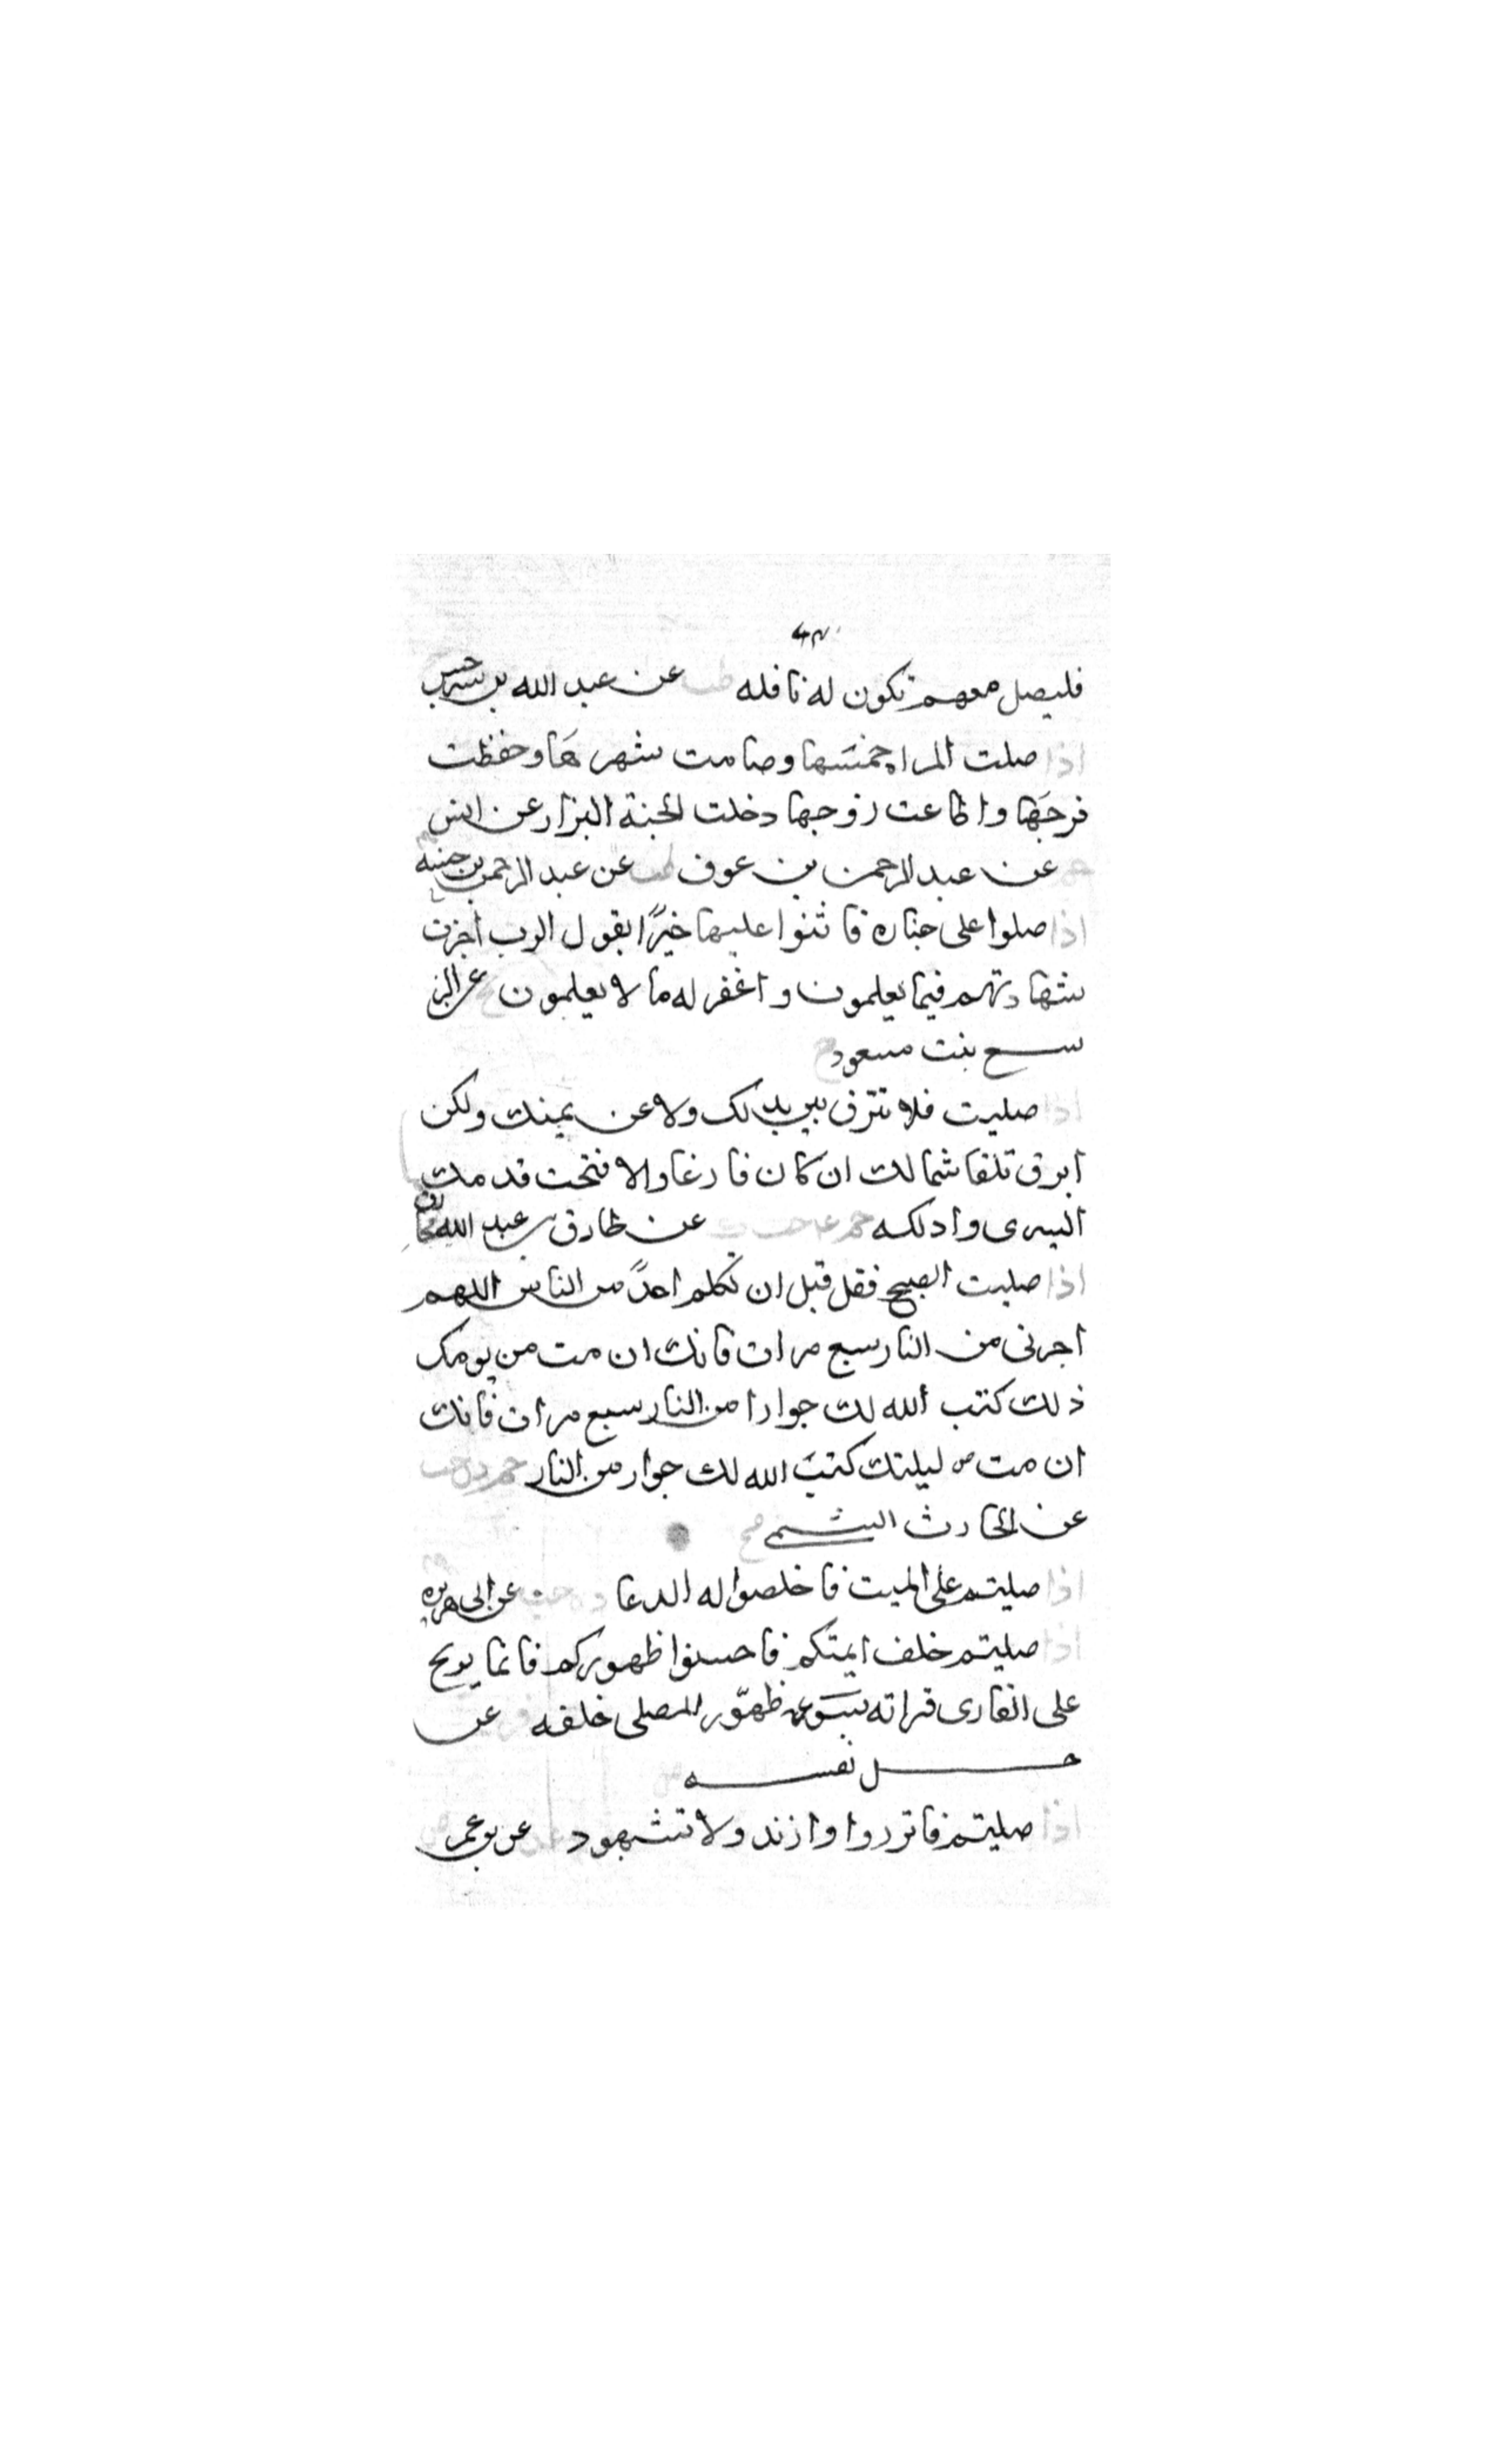 فليصل معهم تكون له نافله طب عن عبد الله بن سرجس
اذا صلت المراة خمسَها وصامت شهرهَا وحفظت
فرجَها واطاعت زوجها دخلت الجنة البزار عن انس
حم عن عبد الرحمن بن عوف طب عن عبد الرحمن بن حسنه
اذا صلوا على جنازه فاثنوا عليها خيرًا يقول الرب اجزت
شهادتهم فيما يعلمون واغفر له ما لا يعلمون تخ عن الربيع
بنت مسعود
اذا صليت فلا تبزق بين يديك ولا عن يمينك ولكن
ابزق تلقا شمالك ان كان فارغا والا فتحت قدمك
اليسرى وادلكه حم عن طارق بن عبد الله
اذا صليت الصبح فقل قبل ان تكلم احدًا من الناس اللهم
اجرنى من النار سبع مرات فانك ان مت من يومك
ذلك كتب الله لك جوارا من النار سبع مرات فانك
ان مت من ليلتك كتبَ الله لك جوار من النار حم د حب
عن الحارث التيمى
اذا صليتم على الميت فاخلصوا له الدعا د ه حب عن ابى هريره
اذا صليتم خلف ايمتكم فاحسنوا طهوركم فانما يرتج
على القارى قراته بسَوء طهوّر المصلى خلفه فر عن
حذيفه
اذا صليتم فاتزروا وارتدوا ولا تشبهوا عن بن عمر